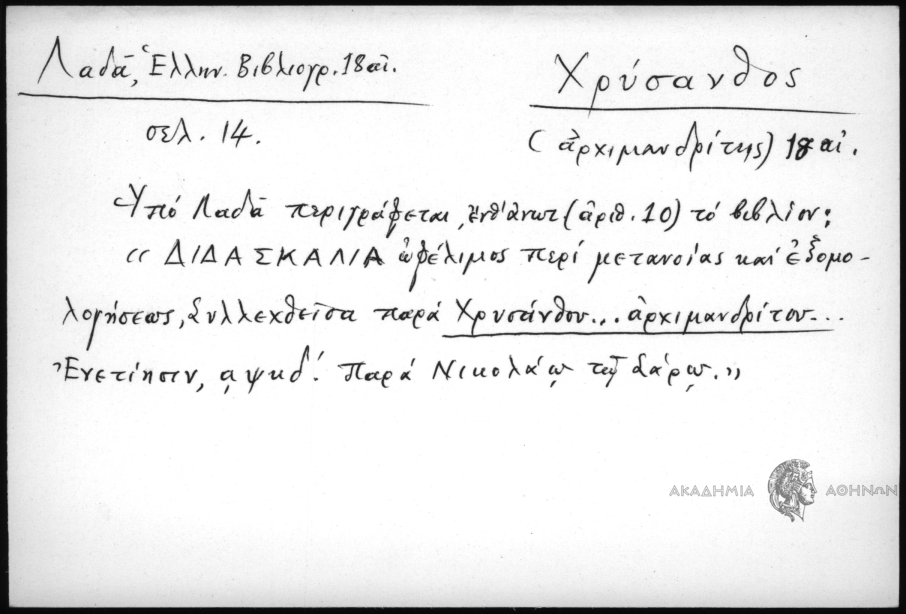 Λαδᾶ, Ἑλλην. Βιβλιογρ. 18 αἰ.
Χρύσανθος
σελ. 14.
(ἀρχιμανδρίτης) 18 αἰ.
Ὑπό Λαδᾶ περιγράφεται ἐνθ' ἀνωτ (ἀριθ. 10) τό βιβλίον:
« ΔΙΔΑΣΚΑΛΙΑ ὠφέλιμος περί μετανοίας καί ἐξομο-
λογήσεως, συλλεχθεῖσα παρά Χρυσάνθου... ἀρχιμανδρίτου...
Ἐνετίησιν, ͵αψκδ΄. Παρά Νικολάῳ τῷ Σάρῳ. »
ΑΚΑΔΗΜΙΑ ΑΘΗΝΩΝ